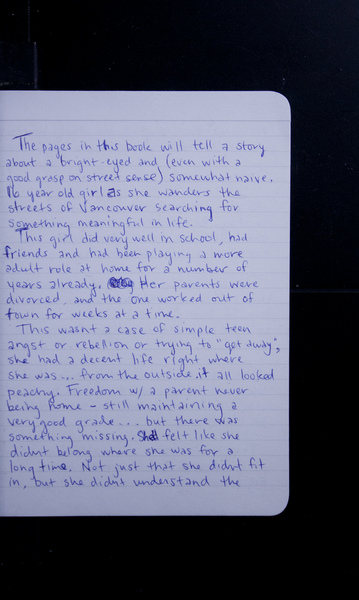 The pages in this book will tell a story
about a bright-eyed and (even with a
good grasp on street sense) somewhat naive.
16 year old girl as she wanders the
streets of Vancouver searching for
something meaningful in life.
This girl did very well in school, had
friends and had been playing a more
adult role at home for a number of
years already. Her parents were
divorced and the one worked out of
town for weeks at a time.
This wasnt a case of simple teen
angst or rebellion or trying to "get away",
she had a decent life right where
she was... from the outside it all looked
peachy. Freedom w/ a parent never
being home - still maintaining a
very good grade... but there was
something missing. She felt like she
didnt belong where she was for a
long time. Not just that she didnt fit
in, but she didnt understand the